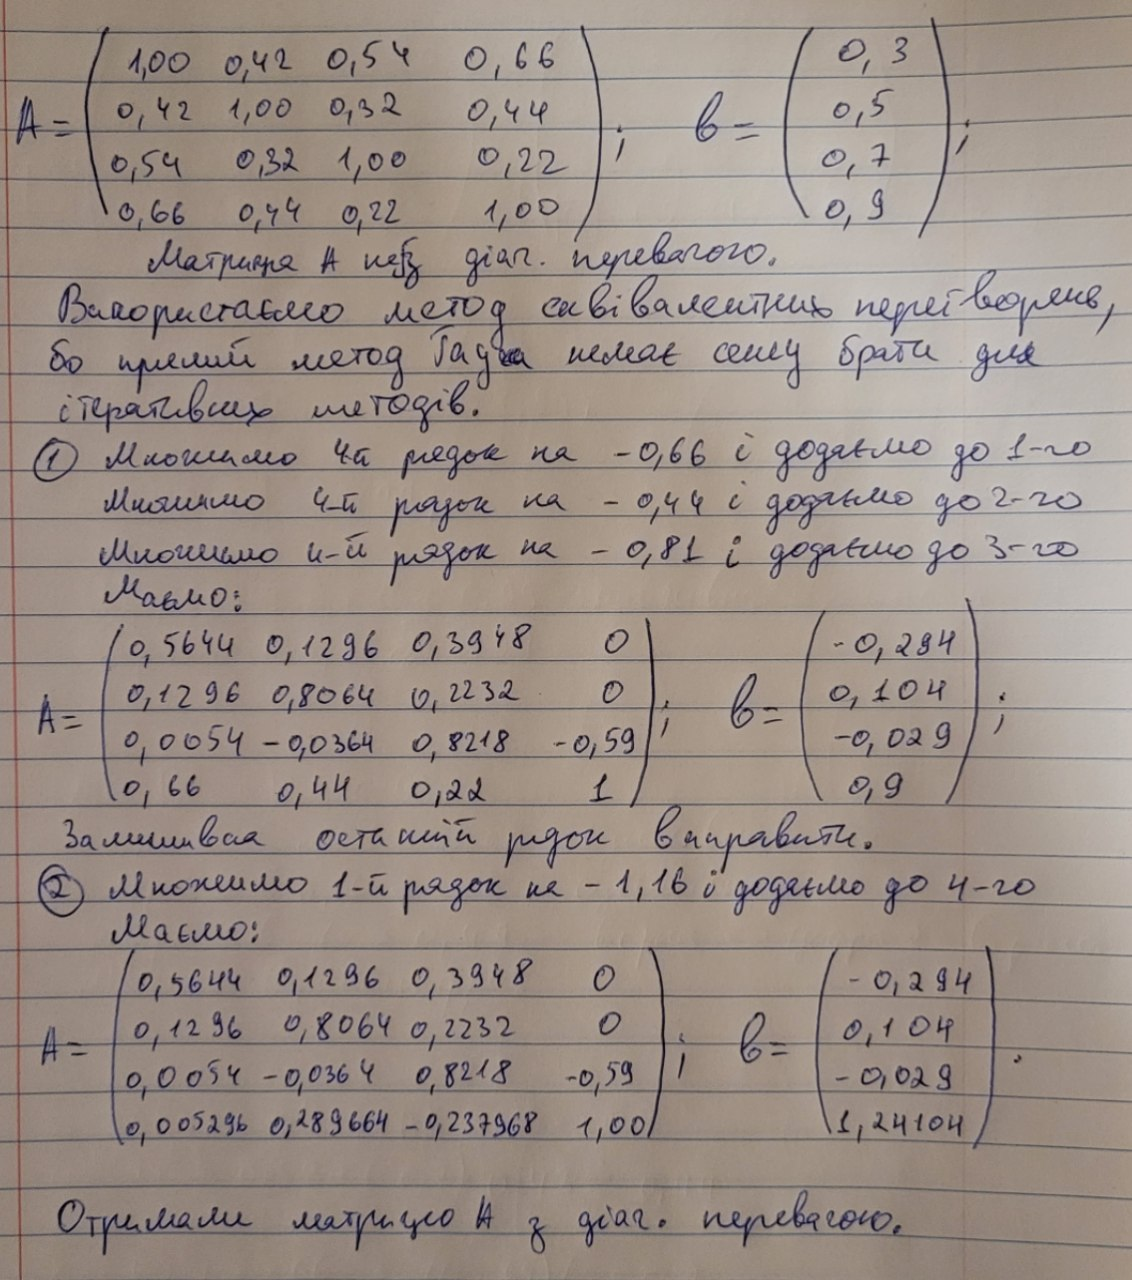 A = ( 1,00 0,42 0,54 0,66 ; в = ( 0,3 ;
0,42 1,00 0,32 0,44 0,5
0,54 0,32 1,00 0,22 0,7
0,66 0,44 0,22 1,00 ) 0,9 )
Матриця А без діаг. перевагою.
Використаємо метод еквівалентних перетворень,
бо прямий метод Гауса немає сенсу брати для
ітеративних методів.
① Множимо 4й рядок на -0,66 і додаємо до 1-го
Множимо 4-й рядок на -0,44 і додаємо до 2-го
Множимо 4-й рядок на -0,81 і додаємо до 3-го
Маємо:
A = ( 0,5644 0,1296 0,3948 0 ; в = ( -0,294 ;
0,1296 0,8064 0,2232 0 0,104
0,0054 -0,0364 0,8218 -0,59 -0,029
0,66 0,44 0,22 1 ) 0,9 )
Залишився останній рядок виправити.
② Множимо 1-й рядок на -1,16 і додаємо до 4-го
Маємо:
A = ( 0,5644 0,1296 0,3948 0 ; в = ( -0,294 .
0,1296 0,8064 0,2232 0 0,104
0,0054 -0,0364 0,8218 -0,59 -0,029
0,005296 0,289664 -0,237968 1,00 ) 1,24104 )
Отримали матрицю А з діаг. перевагою.